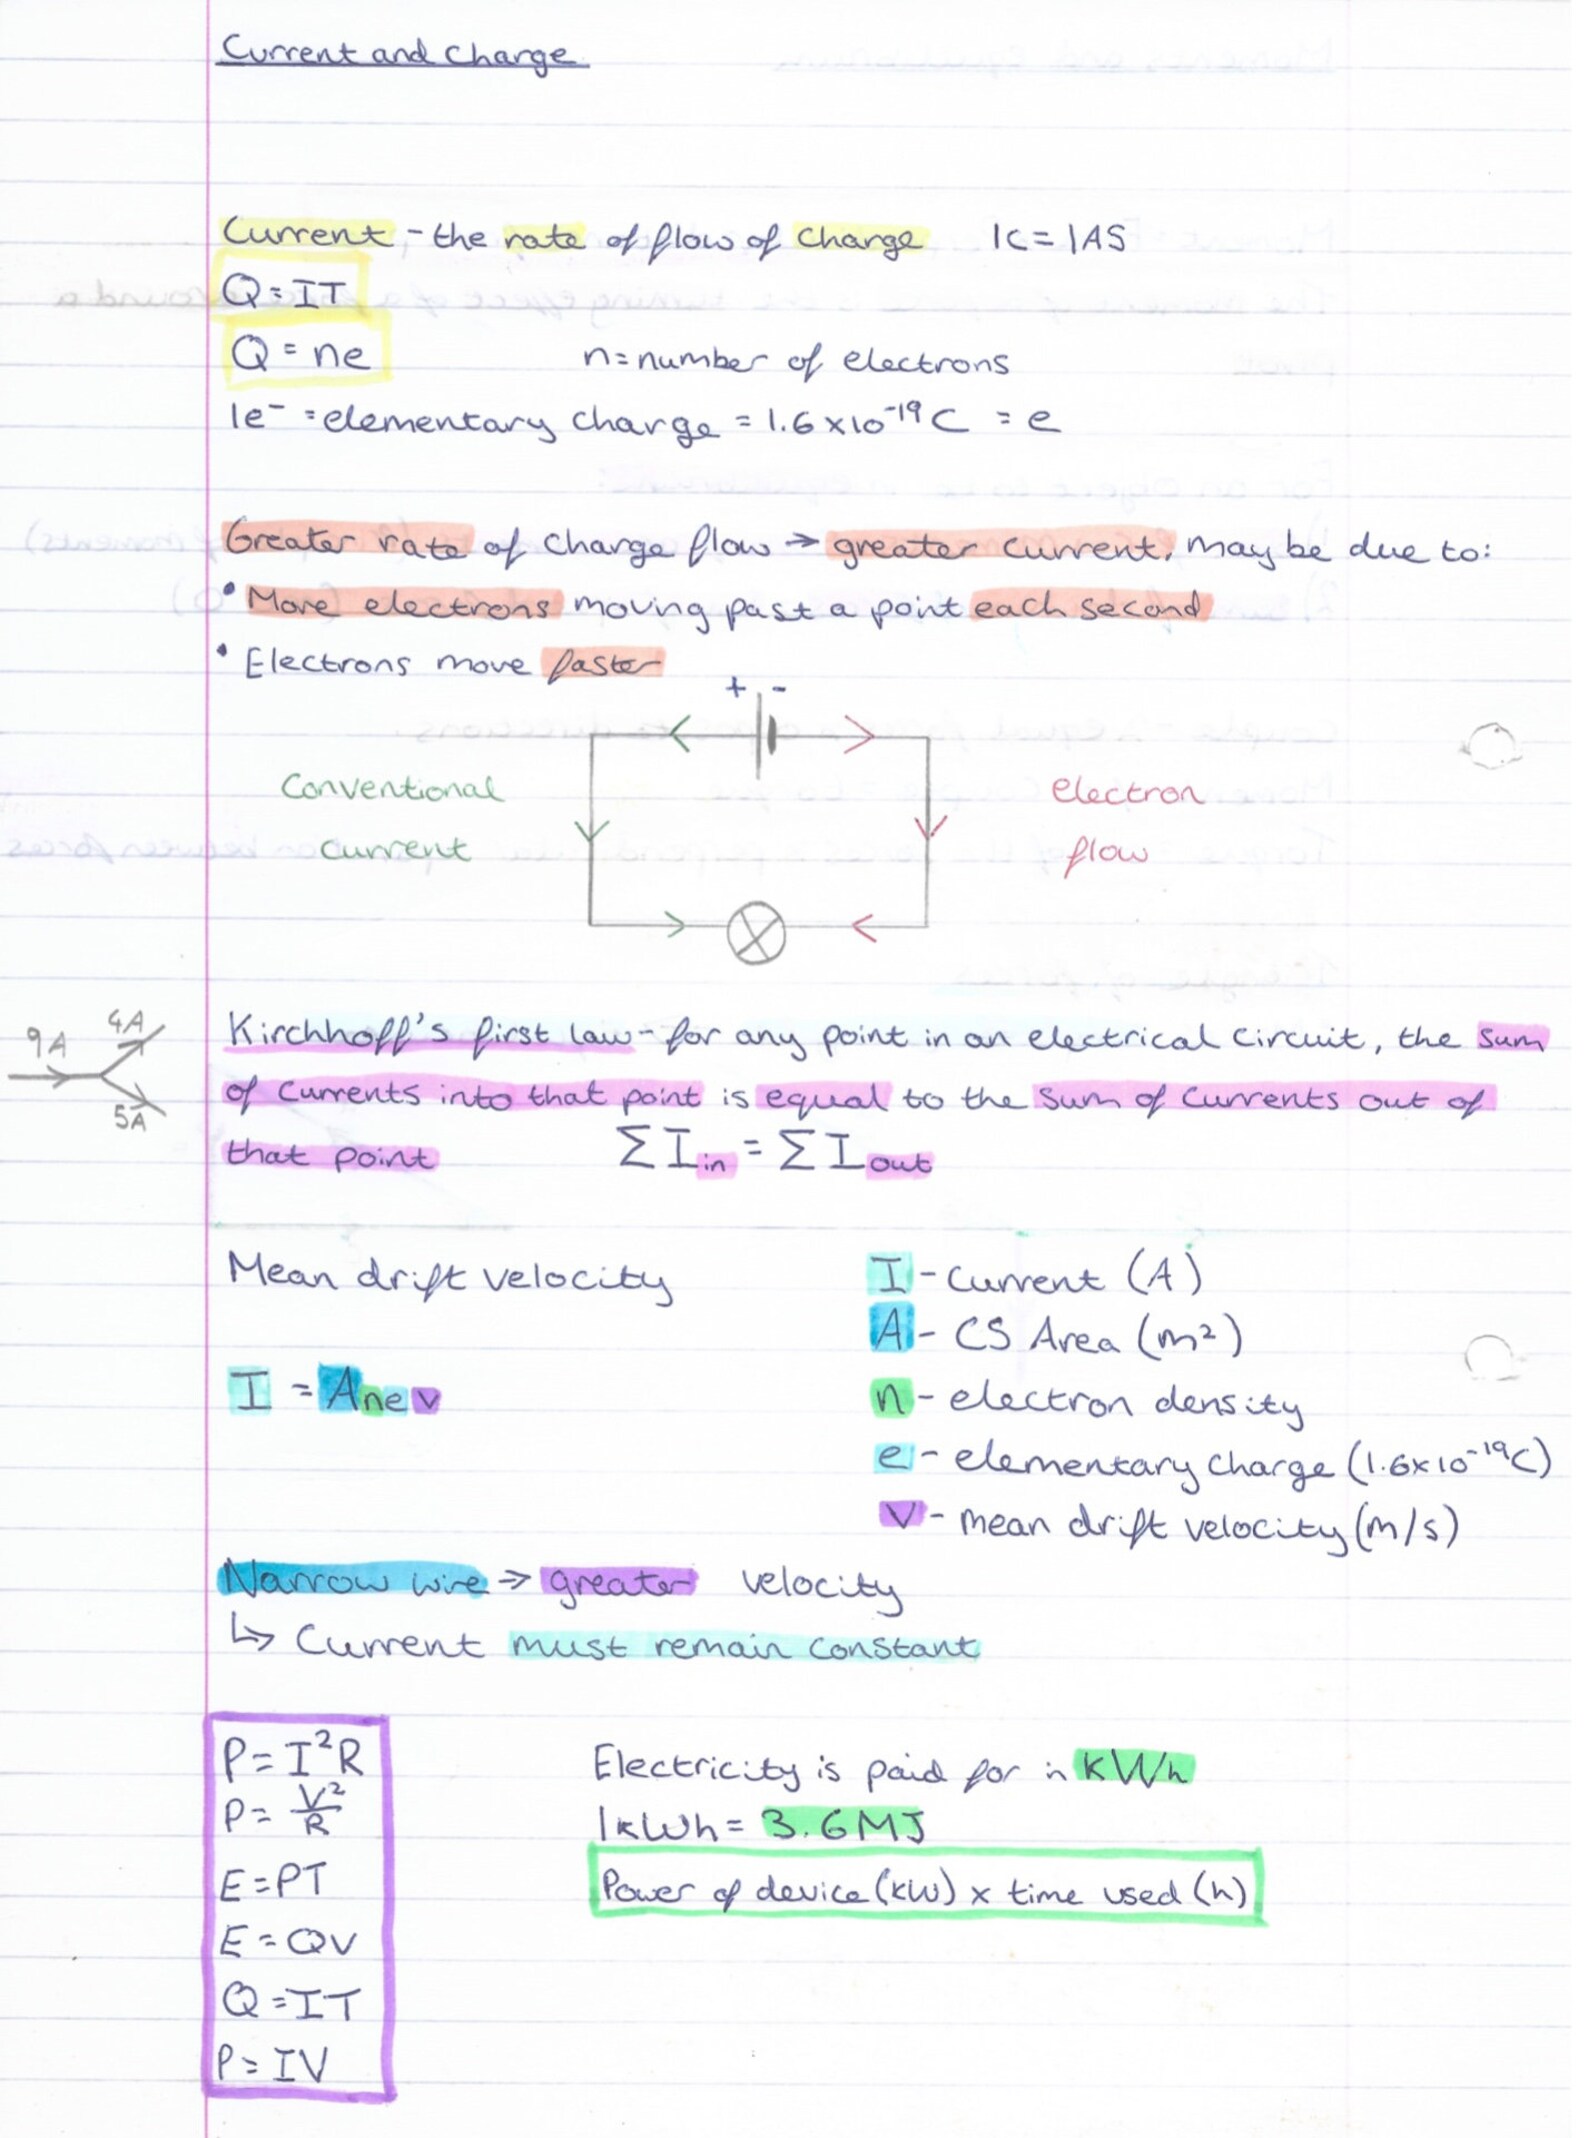 Current and Charge
Current - the rate of flow of charge 1C = 1AS
Q = IT
Q = ne n = number of electrons
1e⁻ = elementary charge = 1.6 x 10⁻¹⁹ C = e
Greater rate of charge flow → greater current, may be due to:
• More electrons moving past a point each second
• Electrons move faster
+ -
Conventional current
electron flow
9A 4A 5A
Kirchhoff's first law - for any point in an electrical circuit, the sum
of currents into that point is equal to the sum of currents out of
that point ΣI in = ΣI out
Mean drift velocity
I = Anev
I - Current (A)
A - CS Area (m²)
n - electron density
e - elementary charge (1.6x10⁻¹⁹C)
v - mean drift velocity (m/s)
Narrow wire → greater velocity
↳ Current must remain constant
P = I²R
P = V²/R
E = PT
E = QV
Q = IT
P = IV
Electricity is paid for in kWh
1kWh = 3.6MJ
Power of device (kW) x time used (h)